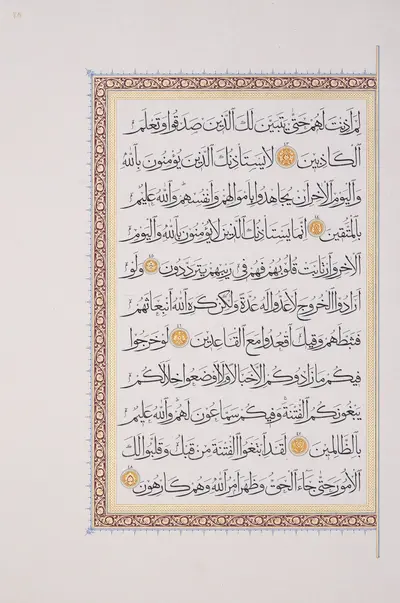 لِمَ أَذِنْتَ لَهُمْ حَتَّىٰ يَتَبَيَّنَ لَكَ الَّذِينَ صَدَقُوا وَتَعْلَمَ
الْكَاذِبِينَ ٤٣ لَا يَسْتَأْذِنُكَ الَّذِينَ يُؤْمِنُونَ بِاللَّهِ
وَالْيَوْمِ الْآخِرِ أَنْ يُجَاهِدُوا بِأَمْوَالِهِمْ وَأَنْفُسِهِمْ وَاللَّهُ عَلِيمٌ
بِالْمُتَّقِينَ ٤٤ إِنَّمَا يَسْتَأْذِنُكَ الَّذِينَ لَا يُؤْمِنُونَ بِاللَّهِ وَالْيَوْمِ
الْآخِرِ وَارْتَابَتْ قُلُوبُهُمْ فَهُمْ فِي رَيْبِهِمْ يَتَرَدَّدُونَ ٤٥ وَلَوْ
أَرَادُوا الْخُرُوجَ لَأَعَدُّوا لَهُ عُدَّةً وَلَٰكِنْ كَرِهَ اللَّهُ انْبِعَاثَهُمْ
فَثَبَّطَهُمْ وَقِيلَ اقْعُدُوا مَعَ الْقَاعِدِينَ ٤٦ لَوْ خَرَجُوا
فِيكُمْ مَا زَادُوكُمْ إِلَّا خَبَالًا وَلَأَوْضَعُوا خِلَالَكُمْ
يَبْغُونَكُمُ الْفِتْنَةَ وَفِيكُمْ سَمَّاعُونَ لَهُمْ وَاللَّهُ عَلِيمٌ
بِالظَّالِمِينَ ٤٧ لَقَدِ ابْتَغَوُا الْفِتْنَةَ مِنْ قَبْلُ وَقَلَّبُوا لَكَ
الْأُمُورَ حَتَّىٰ جَاءَ الْحَقُّ وَظَهَرَ أَمْرُ اللَّهِ وَهُمْ كَارِهُونَ ٤٨